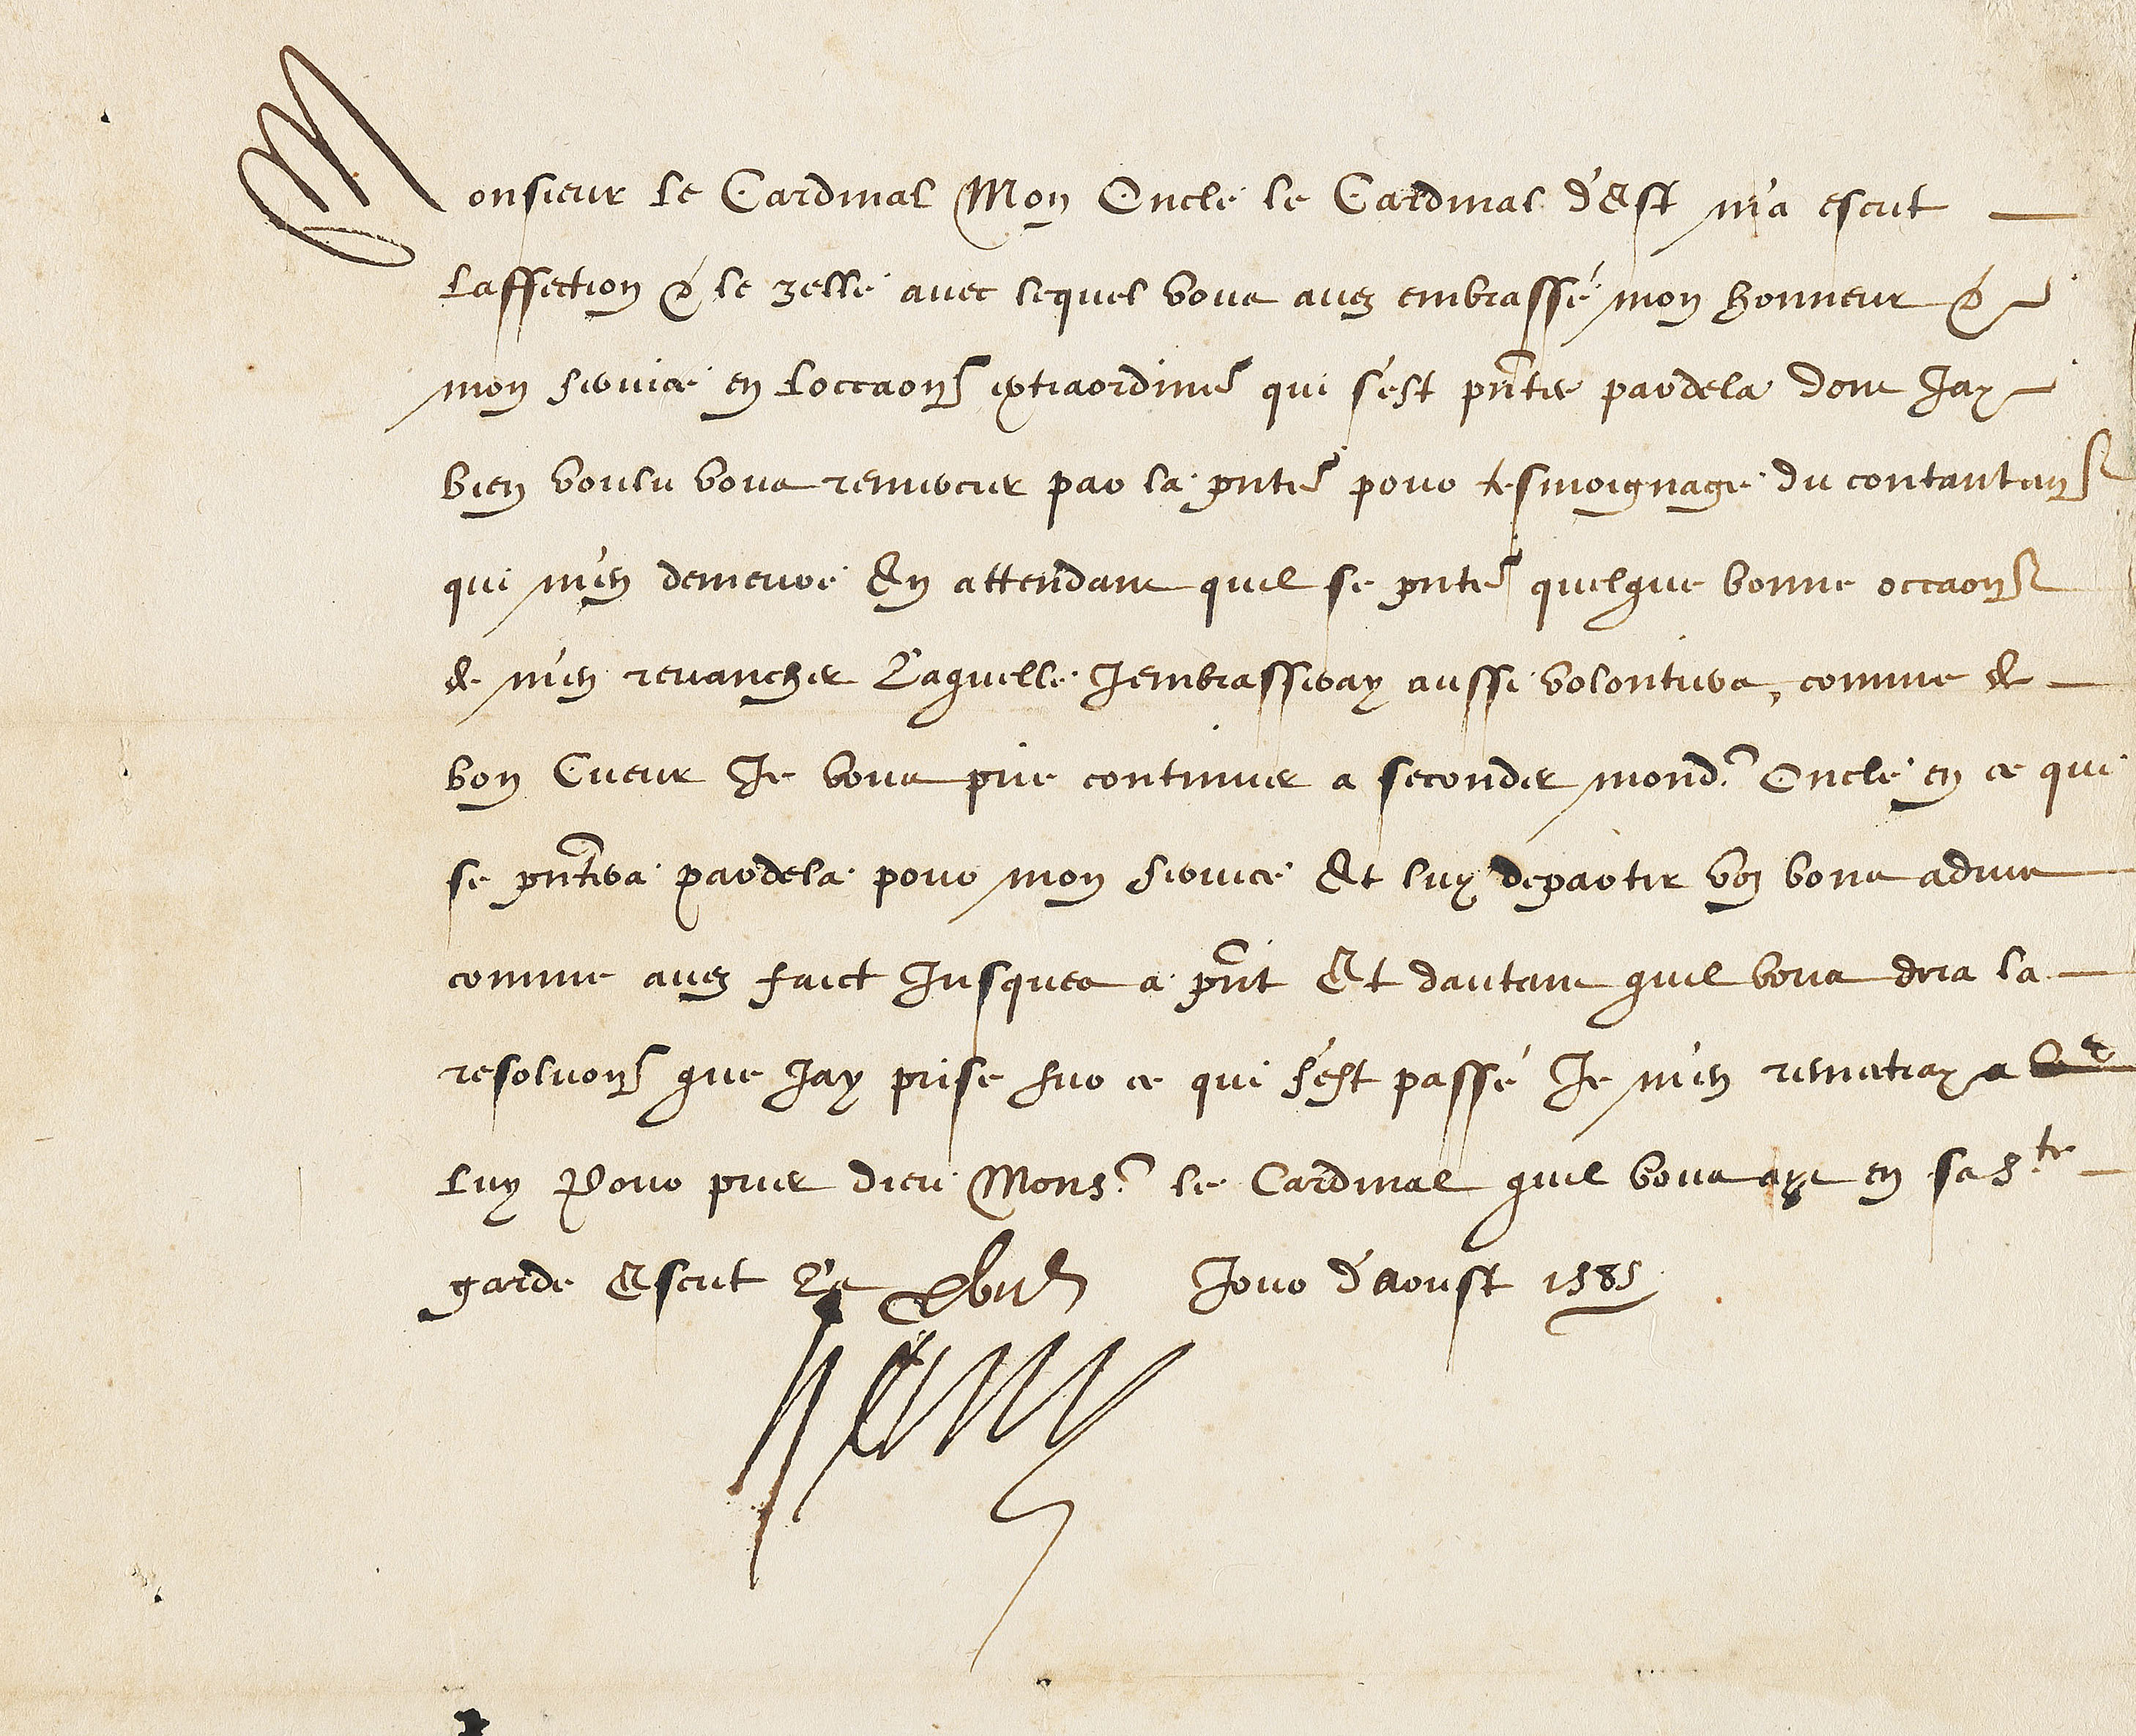 Monsieur le Cardinal Mon Oncle le Cardinal d'Est m'a escrit
laffection & le zelle auec lequel vous auez embrassé mon honneur &
mon seruice en loccaon extraordinre qui s'est pntée pardela dont Jay
bien voulu vous remercier par la pnte pour tesmoignage du contantemt
qui m'en demeure En attendant quil se pnte quelque bonne occaon
de m'en reuancher Laquelle Jembrasseray aussi volontiers, comme de
bon Cueur Je vous prie continuer a seconder mond. Oncle en ce qui
se pntera pardela pour mon seruice Et luy departir voz bons aduis
comme auez faict Jusques a pnt Et dautant quil vous dira la
resoluon que Jay prise sur ce qui s'est passé Je m'en remettray a
luy Pour prier dieu Monsr. le Cardinal quil vous aye en sa Ste
garde Escrit Le Jour d'aoust 1585
Henry